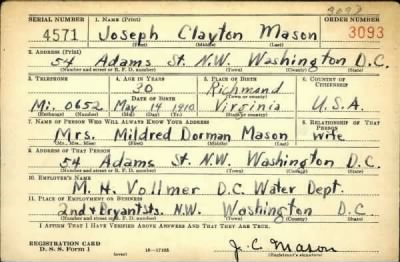 3093
SERIAL NUMBER 1. NAME (Print) ORDER NUMBER
4571 Joseph Clayton Mason 3093
(First) (Middle) (Last)
2. ADDRESS (Print)
54 Adams St. N.W. Washington D.C.
(Number and street or R. F. D. number) (Town) (County) (State)
3. TELEPHONE 4. AGE IN YEARS 5. PLACE OF BIRTH 6. COUNTRY OF CITIZENSHIP
30 Richmond
DATE OF BIRTH (Town or county)
Mi. 0652 May 14 1910 Virginia U.S.A.
(Exchange) (Number) (Mo.) (Day) (Yr.) (State or country)
7. NAME OF PERSON WHO WILL ALWAYS KNOW YOUR ADDRESS 8. RELATIONSHIP OF THAT PERSON
Mrs. Mildred Dorman Mason wife
(Mr., Mrs., Miss) (First) (Middle) (Last)
9. ADDRESS OF THAT PERSON
54 Adams St. N.W. Washington D.C.
(Number and street or R. F. D. number) (Town) (County) (State)
10. EMPLOYER'S NAME
M. H. Vollmer D.C. Water Dept.
11. PLACE OF EMPLOYMENT OR BUSINESS
2nd & Bryant sts. N.W. Washington D C
(Number and street or R. F. D. number) (Town) (County) (State)
I AFFIRM THAT I HAVE VERIFIED ABOVE ANSWERS AND THAT THEY ARE TRUE.
REGISTRATION CARD
D. S. S. Form 1 16—17105 J. C. Mason
(Registrant's signature)